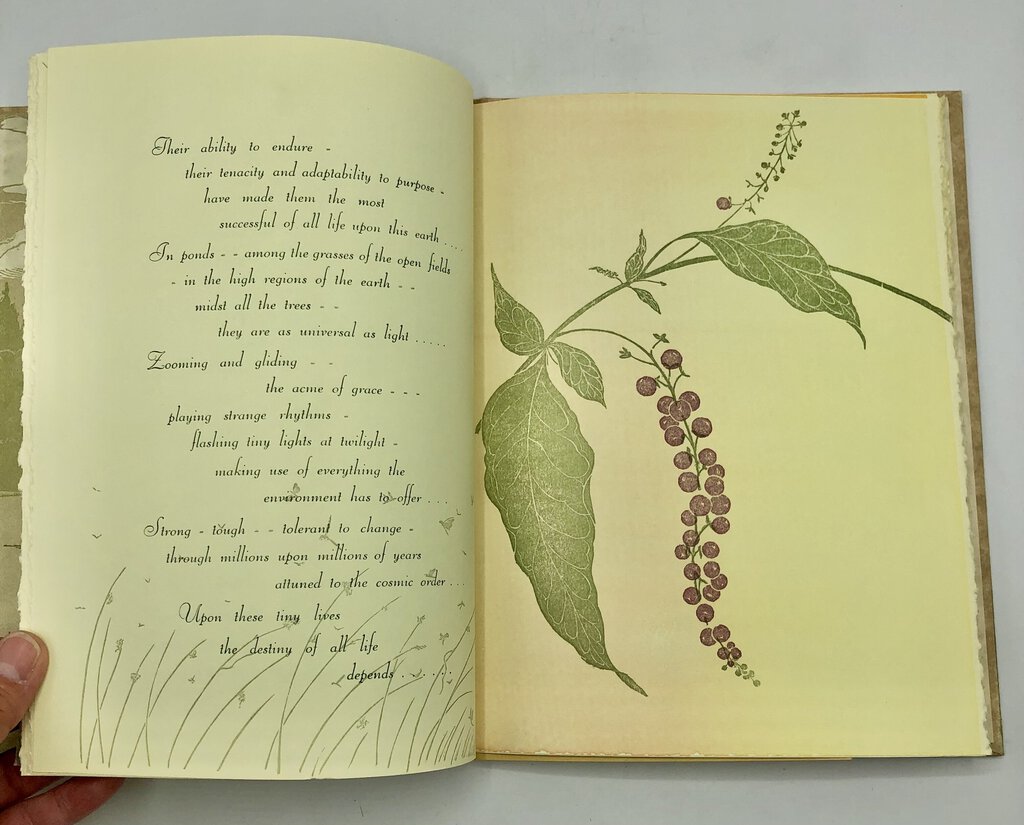 Their ability to endure -
their tenacity and adaptability to purpose -
have made them the most
successful of all life upon this earth ....
In ponds - - among the grasses of the open fields
- in the high regions of the earth - -
midst all the trees - -
they are as universal as light .....
Zooming and gliding - -
the acme of grace - - -
playing strange rhythms -
flashing tiny lights at twilight -
making use of everything the
environment has to offer ...
Strong - tough - - tolerant to change -
through millions upon millions of years
attuned to the cosmic order ...
Upon these tiny lives
the destiny of all life
depends ......